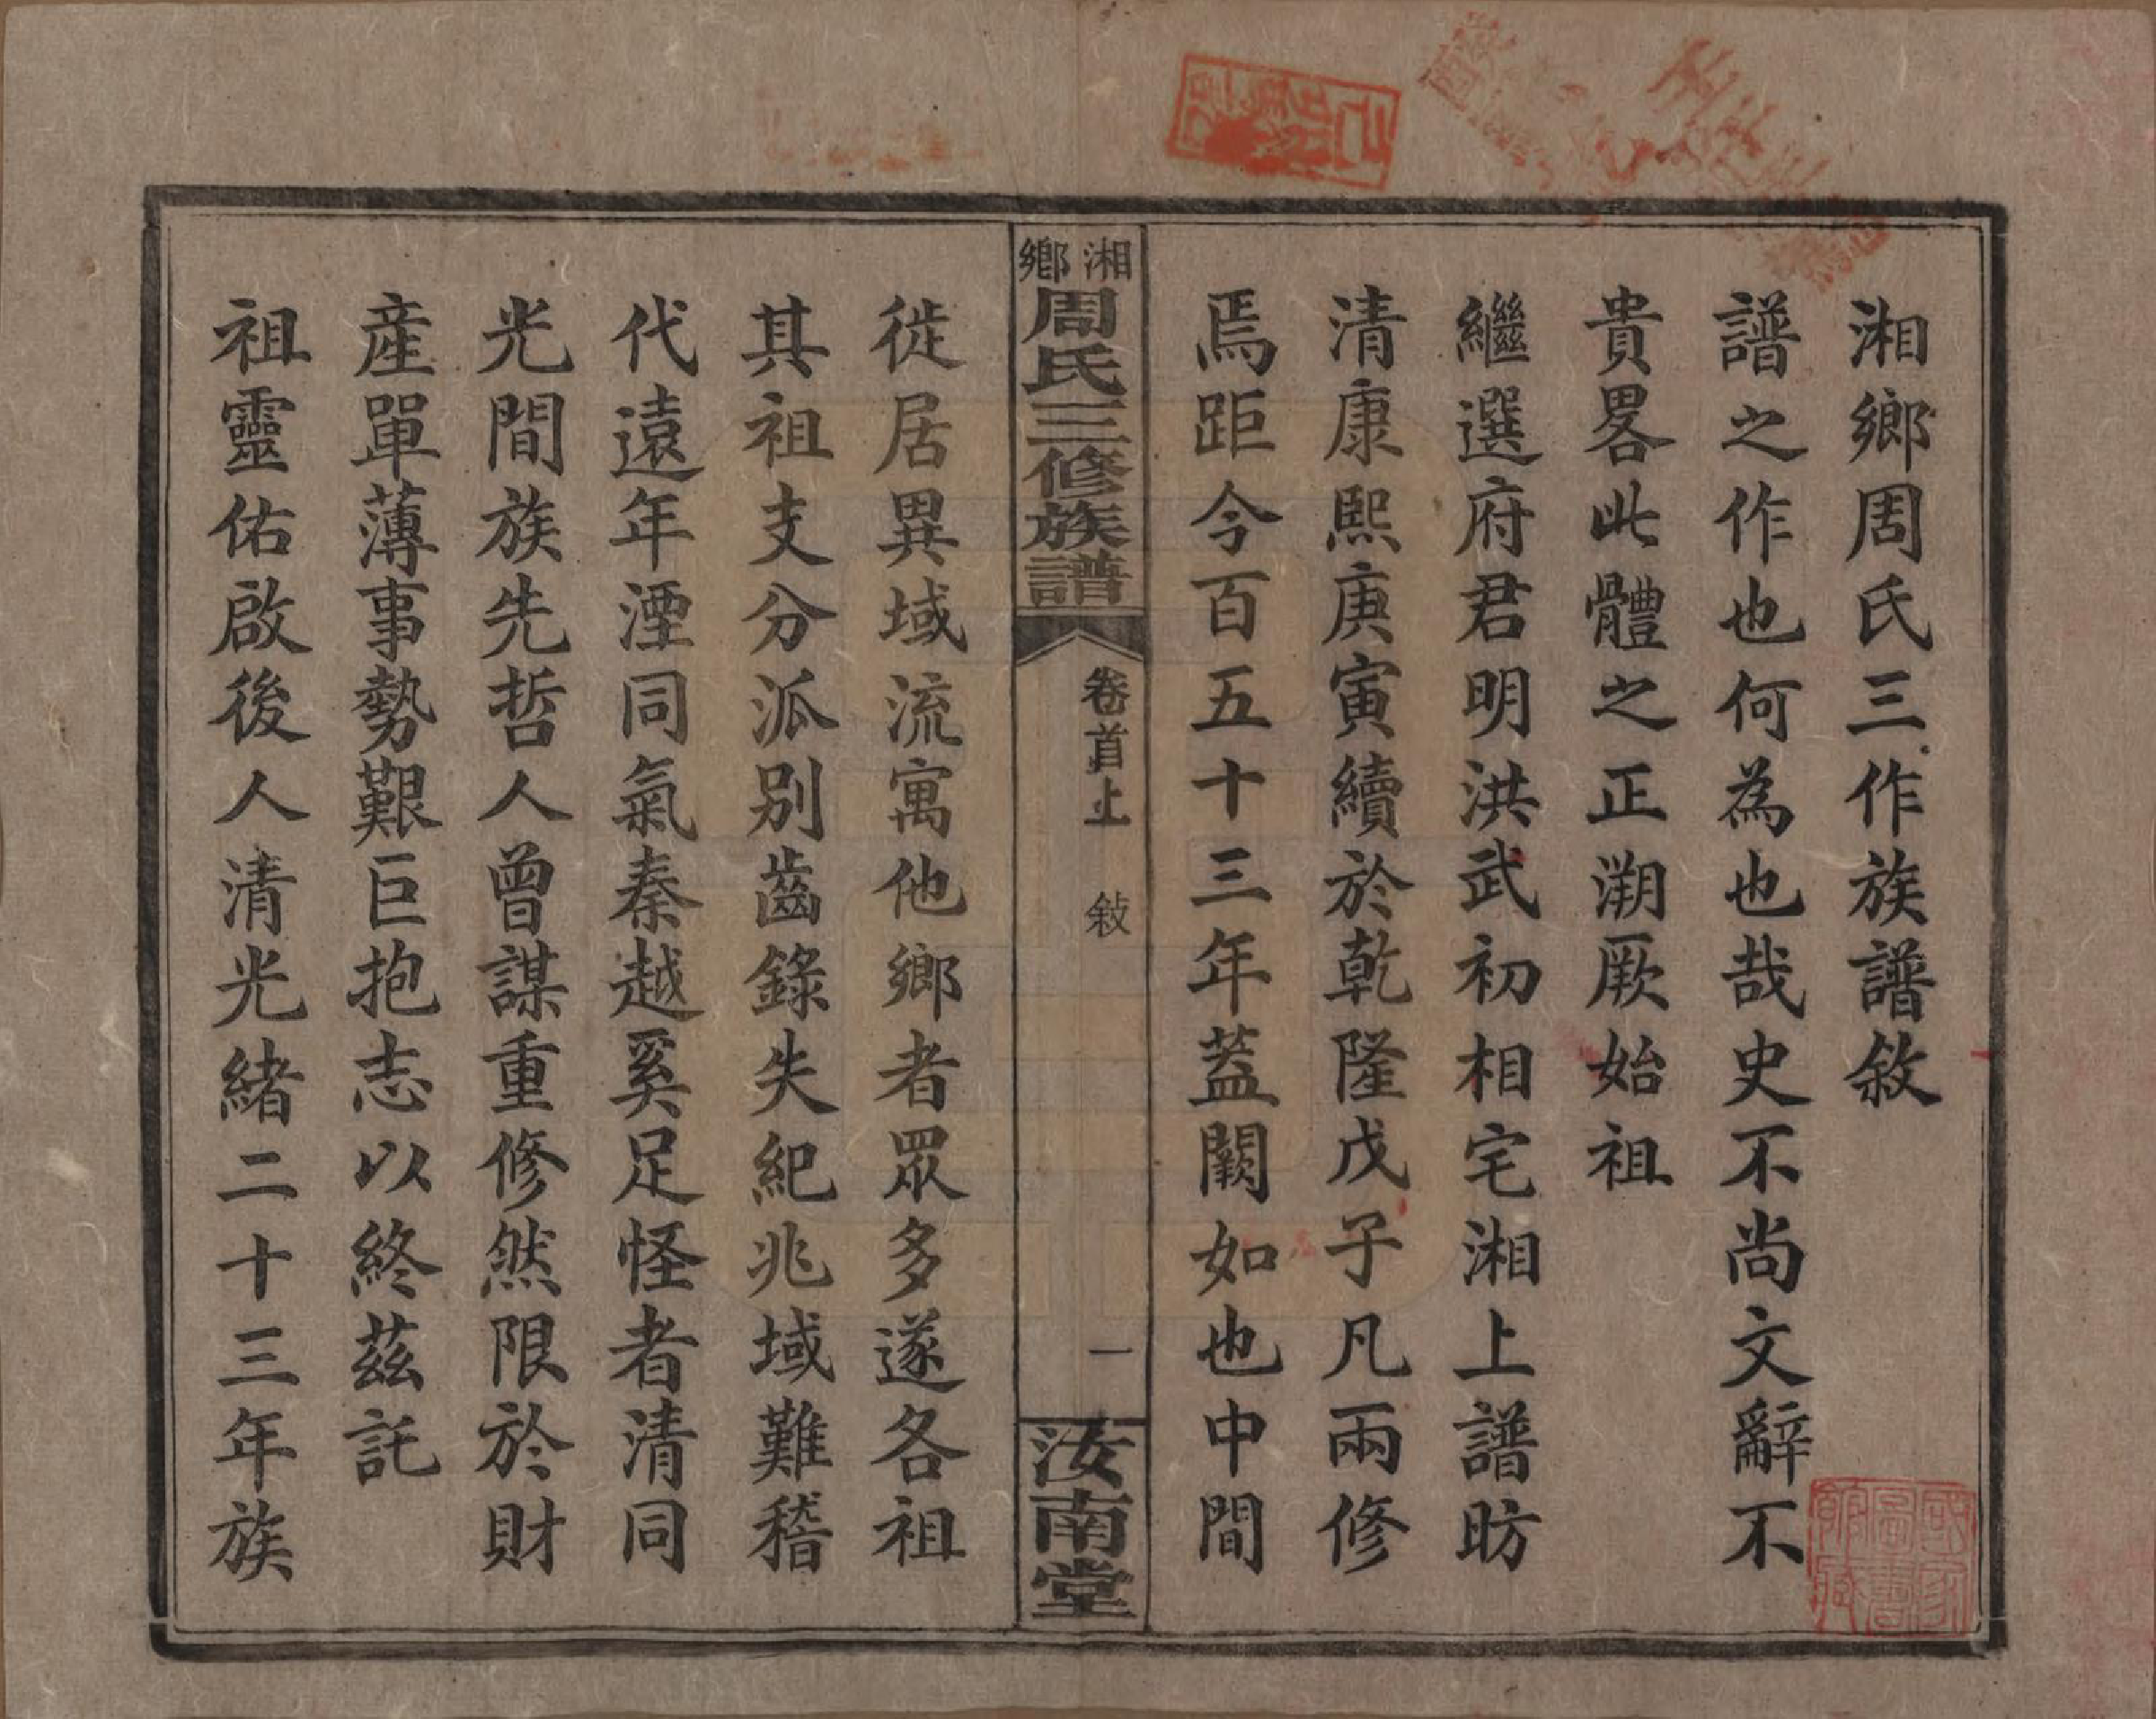 湘鄉周氏三作族譜敘
譜之作也何為也哉史不尚文辭不
貴畧此體之正溯厥始祖
繼選府君明洪武初相宅湘上譜昉
清康熙庚寅續於乾隆戊子凡兩修
焉距今百五十三年蓋闕如也中間
湘鄉周氏三修族譜
卷首上 敍 一
汝南堂
徙居異域流寓他鄉者眾多遂各祖
其祖支分派別齒錄失紀兆域難稽
代遠年湮同氣秦越奚足怪者清同
光間族先哲人曾謀重修然限於財
產單薄事勢艱巨抱志以終茲託
祖靈佑啟後人清光緒二十三年族
國家圖書館藏